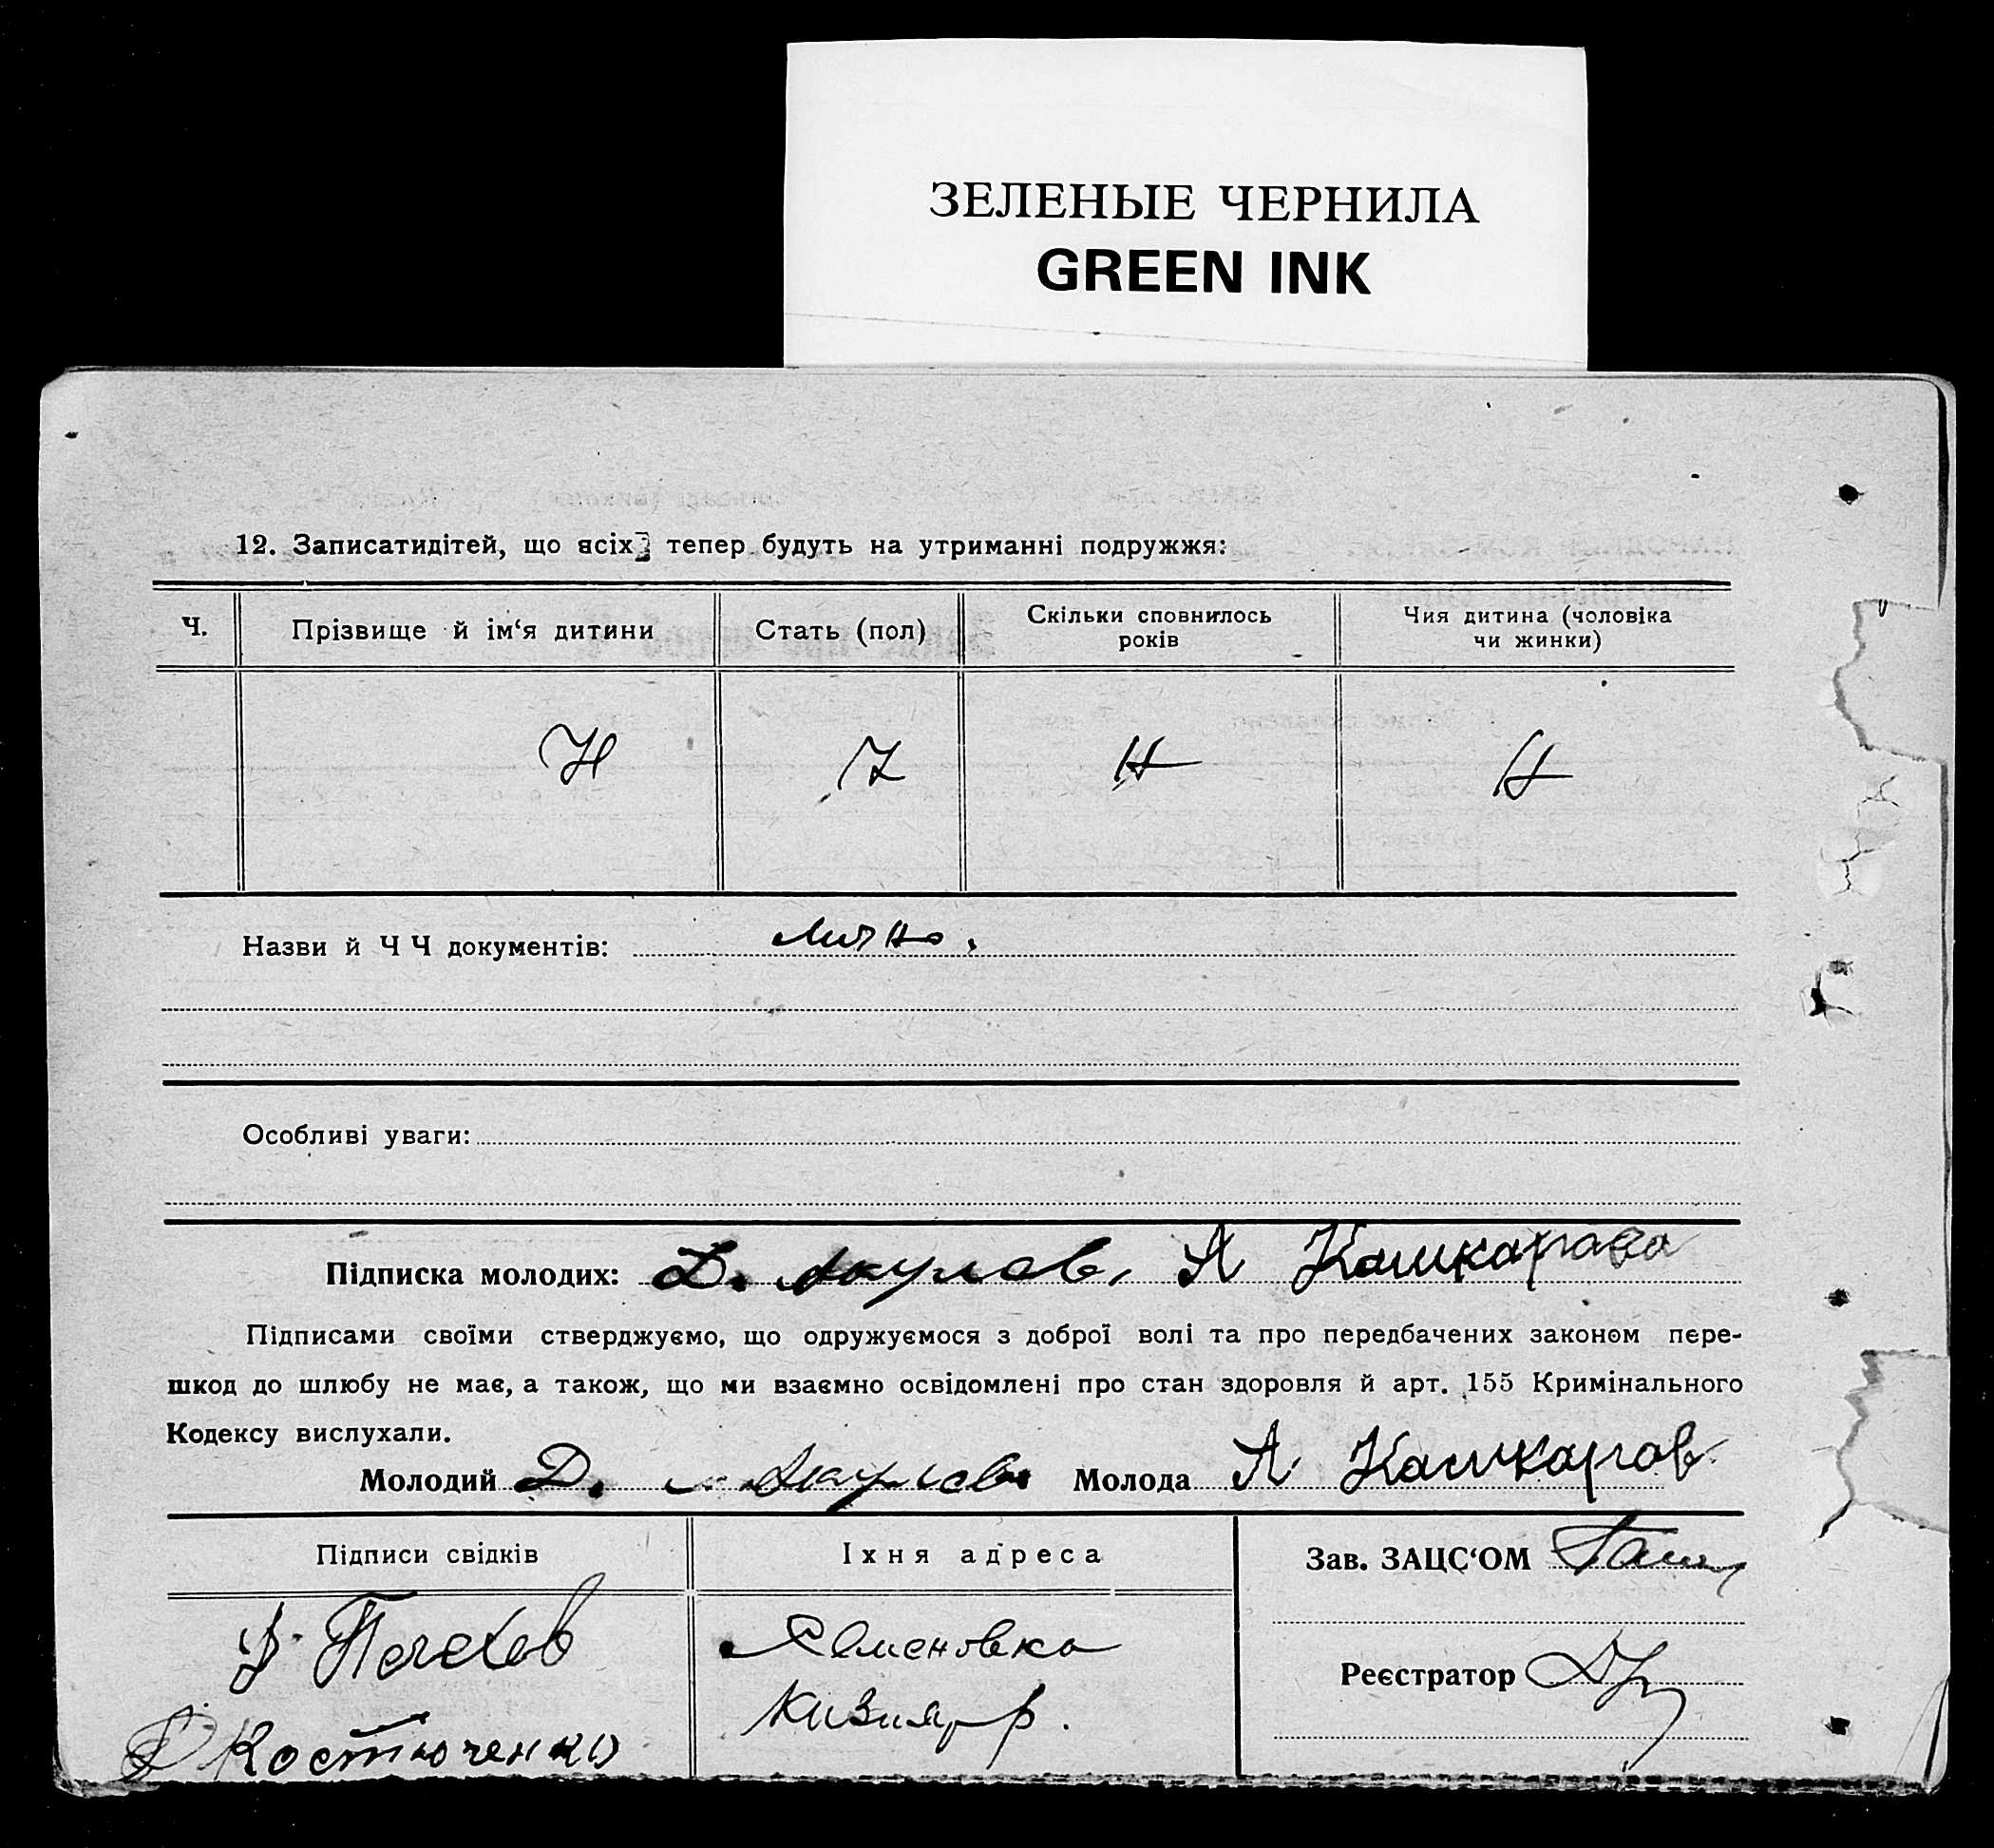 ЗЕЛЕНЫЕ ЧЕРНИЛА
GREEN INK
12. Записатидітей, що всіх тепер будуть на утриманні подружжя:
Ч. Прізвище й ім‘я дитини Стать (пол) Скільки сповнилось років Чия дитина (чоловіка чи жинки)
Н Н Н
Назви й Ч Ч документів: лично.
Особливі уваги:
Підписка молодих: Д. Акулов, А Кашкарова
Підписами своїми стверджуємо, що одружуємося з доброї волі та про передбачених законом пере-
шкод до шлюбу не має, а також, що ми взаємно освідомлені про стан здоровля й арт. 155 Кримінального
Кодексу вислухали.
Молодий Д. Акулов Молода А Кашкаров
Підписи свідків Їхня адреса Зав. ЗАЦС‘ОМ
Семеновка
Реєстратор
Кизияр р.
Костюченко